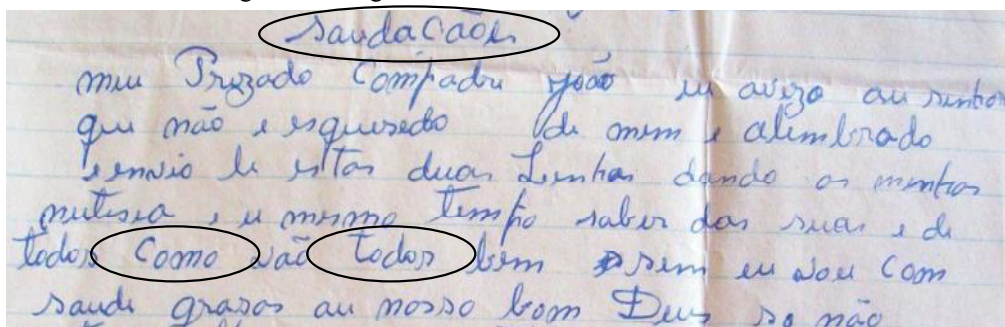 saudacãos
meu Prezado Compadre João eu avizo au senhor
que não e esquesedo de mem e alembrado
e envio le estas duas Linhas dando as minhas
nutisia e u mesmo tempo saber das suas e de
todos Como vão todos bem sem eu vou Com
saude grasas au nosso bom Deus so não